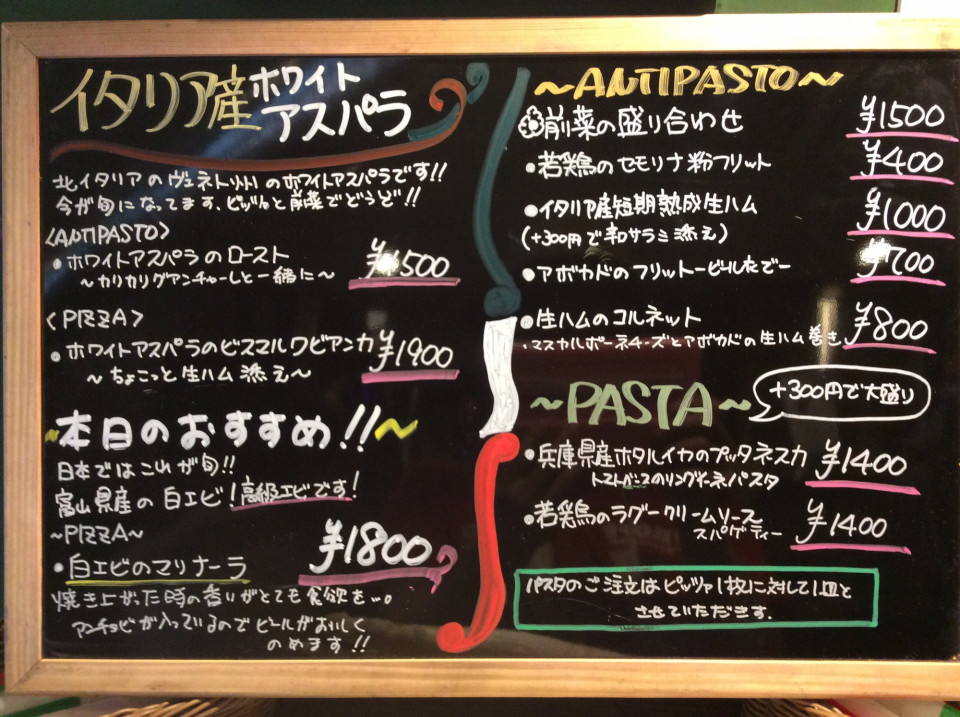 イタリア産ホワイト
アスパラ
北イタリアのヴェネト州のホワイトアスパラです!!
今が旬になってます、ピッツァと前菜でどうぞ!!
<ANTIPASTO>
・ホワイトアスパラのロースト ¥1500
～カリカリグアンチャーレと一緒に～
<PIZZA>
・ホワイトアスパラのビスマルクビアンカ ¥1900
～ちょこっと生ハム添え～
～本日のおすすめ!!～
日本ではこれが旬!!
富山県産の白エビ!高級エビです!
～PIZZA～
・白エビのマリナーラ ¥1800
焼き上がった時の香りがとても食欲を...。
アンチョビが入っているのでビールがおいしく
のめます!!
～ANTIPASTO～
前菜の盛り合わせ ¥1500
・若鶏のセモリナ粉フリット ¥400
・イタリア産短期熟成生ハム ¥1000
(+300円で和サラミ添え)
・アボカドのフリットービールたでー ¥700
・生ハムのコルネット ¥800
・マスカルポーネチーズとアボカドの生ハム巻き
～PASTA～ +300円で大盛り
・兵庫県産ホタルイカのプッタネスカ ¥1400
トマトベースのリングイーネパスタ
・若鶏のラグークリームソース ¥1400
スパゲティー
パスタのご注文はピッツァ1枚に対して1皿と
させていただきます.